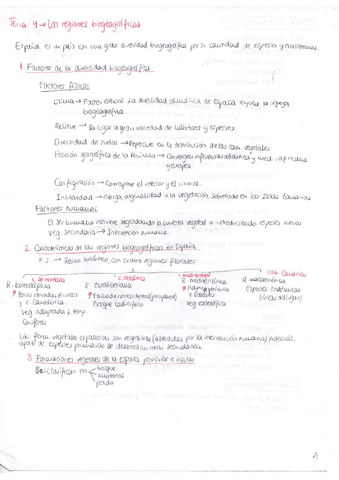 Tema 4 → Las regiones biogeográficas
España es un país con una gran diversidad biogeográfica por la cantidad de especies y
1. Factores de la diversidad biogeográfica
Factores físicos
Clima → Factor esencial. La diversidad climática de España explica la riqueza
biogeográfica.
Relieve → Da lugar a gran variedad de hábitats y especies.
Diversidad de suelos → Repercute en la distribución de las com. vegetales
Posición geográfica de la Península → Convergen influencias atlántica y med. , africana
y europea.
Configuración → Contrapone el interior y el litoral.
Insularidad → Otorga originalidad a la vegetación, sobretodo en las Islas Canarias
Factores humanos
El ser humano interviene degradando la cubierta vegetal o introduciendo especies nuevas
Veg. secundaria → Intervención humana.
2. Características de las regiones biogeográficas en España
P.I. → Reino holártico, con cuatro regiones florales:
C. montaña
R. boreoalpina
Zonas elevadas
C. Cantábrica
Veg. adaptada ↓ temp.
Coníferas
C. oceánico
R. Eurosiberiana
Bosque caducifolio
R. mediterránea
y Baleares
Veg. esclerófila
Islas Canarias
R. macaronésica
Especies endémicas
(única del lugar)
Las form. vegetales españolas son regresivas (afectadas por la intervención humana),
aparte de especies primarias se desarrollan otras secundarias.
3. Formaciones vegetales de la España peninsular e insular
Se clasifican en
bosque
matorral
prado